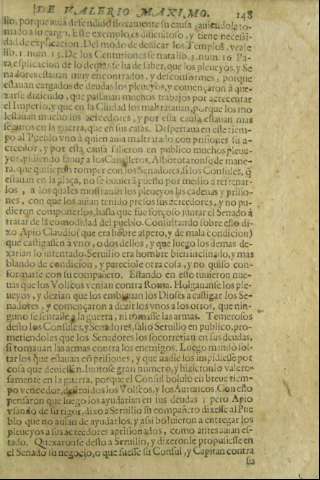 DE VALERIO MAXIMO. 148
llo, porque avia defendido floxamente su causa, aviendola to-
mado a su cargo. Este exemplo es dificultoso, y tiene necessi-
dad de explicacion. Del modo de dedicar los Templos, vease
lib. 1. num. 15. De los Centuriones se trata lib. 3. num. 10. Pa-
ra explicacion de lo demas se ha de saber, que los pleueyos, y Se
nadores estauan muy encontrados, y desconformes, porque
estauan cargados de deudas los pleueyos, y començaron a que-
xarse diziendo, que passauan muchos trabajos por acrecentar
el Imperio, y que en la Ciudad los maltratauan, porque los mo
lestauan mucho los acreedores, y por esta causa estauan mas
seguros en la guerra, que en sus casas. Despertaua en este tiem-
po al Pueblo vno a quien auia maltratado con prisiones su a-
creedor, y por esta causa salieron en publico muchos pleue-
yos, pidiendo fauor a los Caualleros. Alborotaronse de mane-
ra, que quisieron romper con los Senadores, si los Consules, q̃
estauan en la plaça, no se huuiera puesto por medio a refrenar-
los, a los quales mostrauan los pleueyos las cadenas y prisio-
nes, con que los auian tenido presos sus acreedores, y no pu-
dieron componerlos, hasta que fue forçoso juntar el Senado à
tratar de la comodidad del pueblo. Consultando sobre ello di-
xo Apio Claudio (que era hombre aspero, y de mala condicion)
que castigassen à vno, o dos dellos, y que luego los demas de-
xarian lo intentado. Seruilio era hombre bien inclinado, y mas
blando de condicion, y pareciole otra cosa, y no quiso con-
formarse con su compañero. Estando en esto tuuieron nue-
uas que los Volscos venian contra Roma. Holgauanse los ple-
ueyos, y dezian que los embiauan los Dioses a castigar los Se-
nadores, y començaron a dezir los vnos a los otros, que nin-
guno se assentasse a la guerra, ni tomasse las armas. Temerosos
desto los Consules, y Senadores, salio Seruilio en publico, pro-
metiendoles que los Senadores los socorrerian en sus deudas,
si tomauan las armas contra los enemigos. Luego mandò sol-
tar los que estauan en prisiones, y que nadie los impidiesse por
cosa que deuiessen. Iuntose gran numero, y hizieronlo valero-
samente en la guerra, porque el Consul boluio en breue tiem-
po vencedor, destruidos los Volscos, y los Auruncos. Con esto
pensaron que luego los ayudarian en sus deudas; pero Apio
vsando de su rigor, dixo a Seruilio su compañero dixesse al Pue
blo que no auian de ayudarlos, y assi boluieron a entregar los
pleueyos a sus acreedores aprisionados, como antes auian es-
tado. Quexaronse desto a Seruilio, y dixeronle propusiesse en
el Senado su negocio, o que fuesse su Consul, y Capitan contra
su